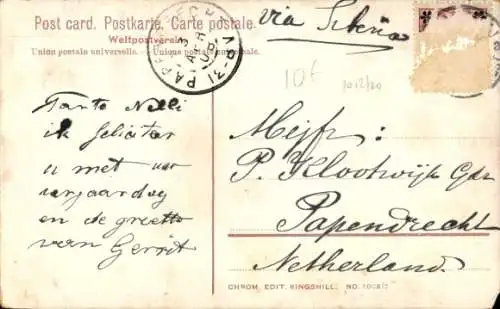 Post card. Postkarte. Carte postale.
Weltpostverein
Union postale universelle. Unione postale universale.
via Siberia
PAPENDRECHT
10€
1012/20
Tante Nelli
ik feliciteer
u met uw
verjaardag
en de groette
van Gerrit
Mejfr:
P. Klootwijk
Papendrecht
Netherland.
CHROM. EDIT. KINGSHILL. NO.